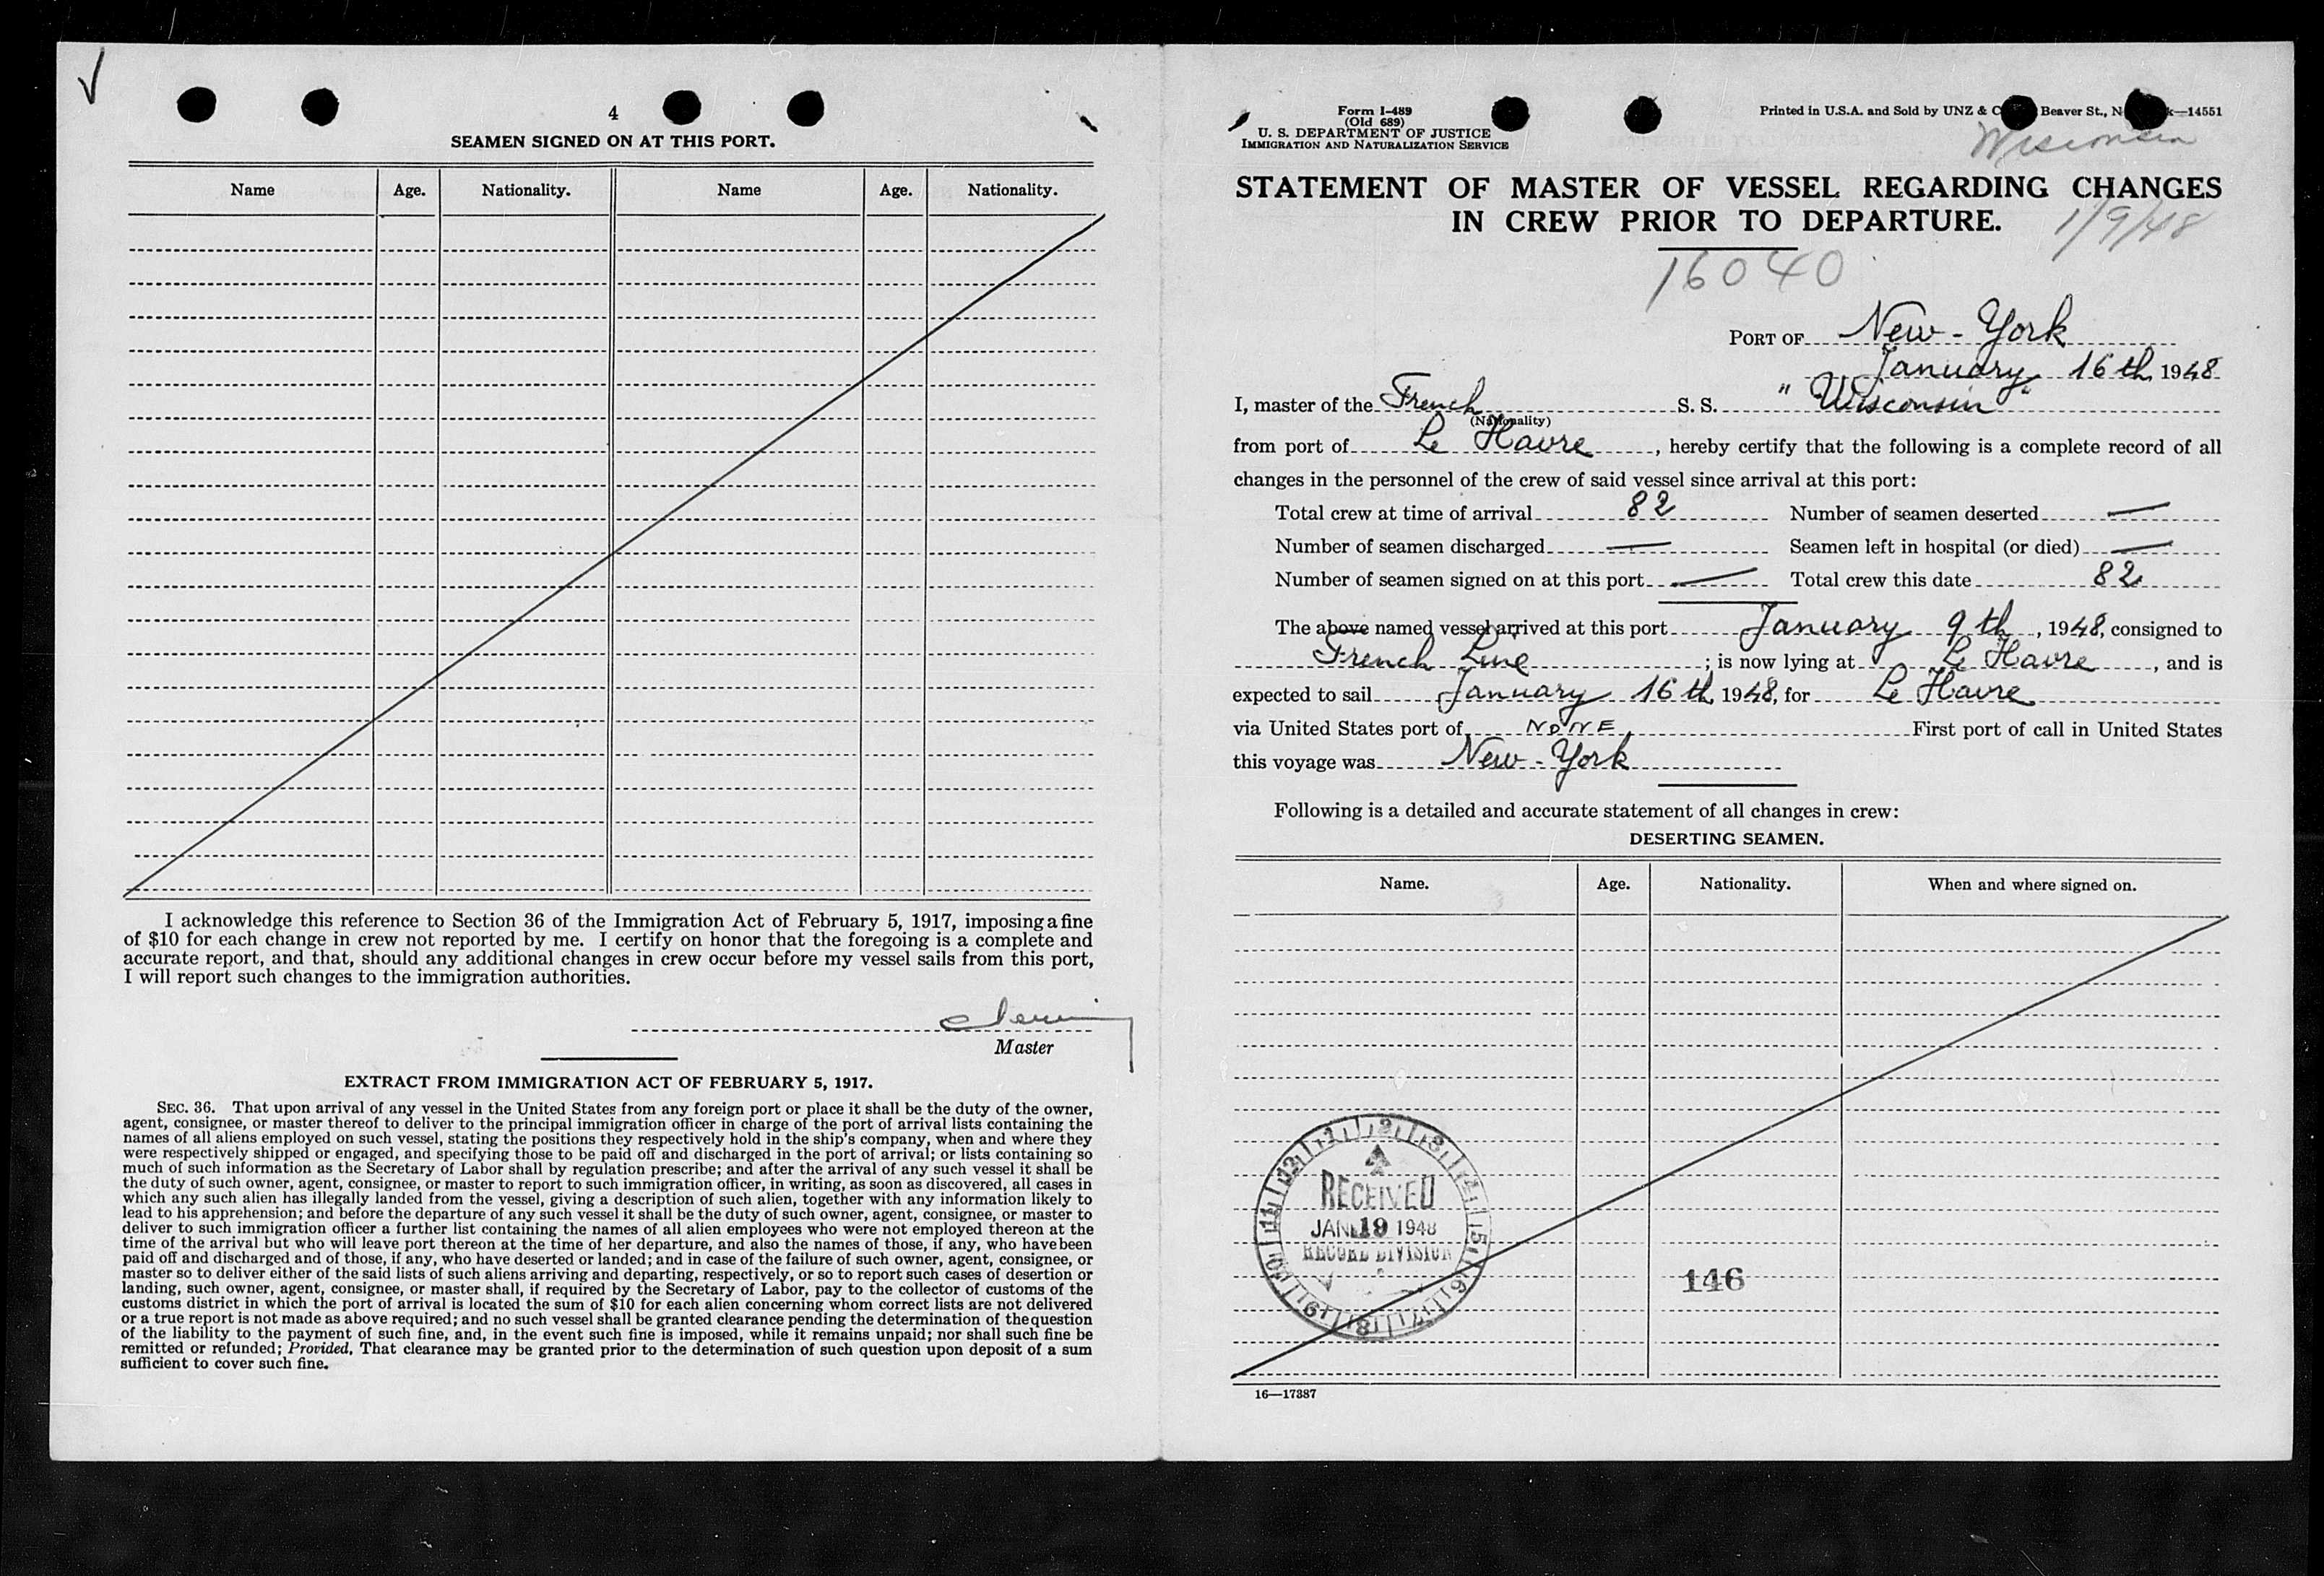 4
SEAMEN SIGNED ON AT THIS PORT.
Name Age. Nationality. Name Age. Nationality.
I acknowledge this reference to Section 36 of the Immigration Act of February 5, 1917, imposing a fine
of $10 for each change in crew not reported by me. I certify on honor that the foregoing is a complete and
accurate report, and that, should any additional changes in crew occur before my vessel sails from this port,
I will report such changes to the immigration authorities.
Master
EXTRACT FROM IMMIGRATION ACT OF FEBRUARY 5, 1917.
SEC. 36. That upon arrival of any vessel in the United States from any foreign port or place it shall be the duty of the owner,
agent, consignee, or master thereof to deliver to the principal immigration officer in charge of the port of arrival lists containing the
names of all aliens employed on such vessel, stating the positions they respectively hold in the ship's company, when and where they
were respectively shipped or engaged, and specifying those to be paid off and discharged in the port of arrival; or lists containing so
much of such information as the Secretary of Labor shall by regulation prescribe; and after the arrival of any such vessel it shall be
the duty of such owner, agent, consignee, or master to report to such immigration officer, in writing, as soon as discovered, all cases in
which any such alien has illegally landed from the vessel, giving a description of such alien, together with any information likely to
lead to his apprehension; and before the departure of any such vessel it shall be the duty of such owner, agent, consignee, or master to
deliver to such immigration officer a further list containing the names of all alien employees who were not employed thereon at the
time of the arrival but who will leave port thereon at the time of her departure, and also the names of those, if any, who have been
paid off and discharged and of those, if any, who have deserted or landed; and in case of the failure of such owner, agent, consignee, or
master so to deliver either of the said lists of such aliens arriving and departing, respectively, or so to report such cases of desertion or
landing, such owner, agent, consignee, or master shall, if required by the Secretary of Labor, pay to the collector of customs of the
customs district in which the port of arrival is located the sum of $10 for each alien concerning whom correct lists are not delivered
or a true report is not made as above required; and no such vessel shall be granted clearance pending the determination of the question
of the liability to the payment of such fine, and, in the event such fine is imposed, while it remains unpaid; nor shall such fine be
remitted or refunded; Provided, That clearance may be granted prior to the determination of such question upon deposit of a sum
sufficient to cover such fine.
Form I-489
(Old 689)
U. S. DEPARTMENT OF JUSTICE
IMMIGRATION AND NATURALIZATION SERVICE
Printed in U.S.A. and Sold by UNZ & C Beaver St., N k—14551
Wisconsin
STATEMENT OF MASTER OF VESSEL REGARDING CHANGES
IN CREW PRIOR TO DEPARTURE.
1/9/48
16040
PORT OF New-York
January 16th 1948
I, master of the French S. S. "Wisconsin"
(Nationality)
from port of Le Havre, hereby certify that the following is a complete record of all
changes in the personnel of the crew of said vessel since arrival at this port:
Total crew at time of arrival 82 Number of seamen deserted —
Number of seamen discharged — Seamen left in hospital (or died) —
Number of seamen signed on at this port — Total crew this date 82
The above named vessel arrived at this port January 9th, 1948, consigned to
French Line; is now lying at Le Havre, and is
expected to sail January 16th 1948, for Le Havre
via United States port of NONE First port of call in United States
this voyage was New-York
Following is a detailed and accurate statement of all changes in crew:
DESERTING SEAMEN.
Name. Age. Nationality. When and where signed on.
1 2 3 4 5 6 7 8 9 10 11 12
RECEIVED
JAN 19 1948
RECORD DIVISION
146
16—17387